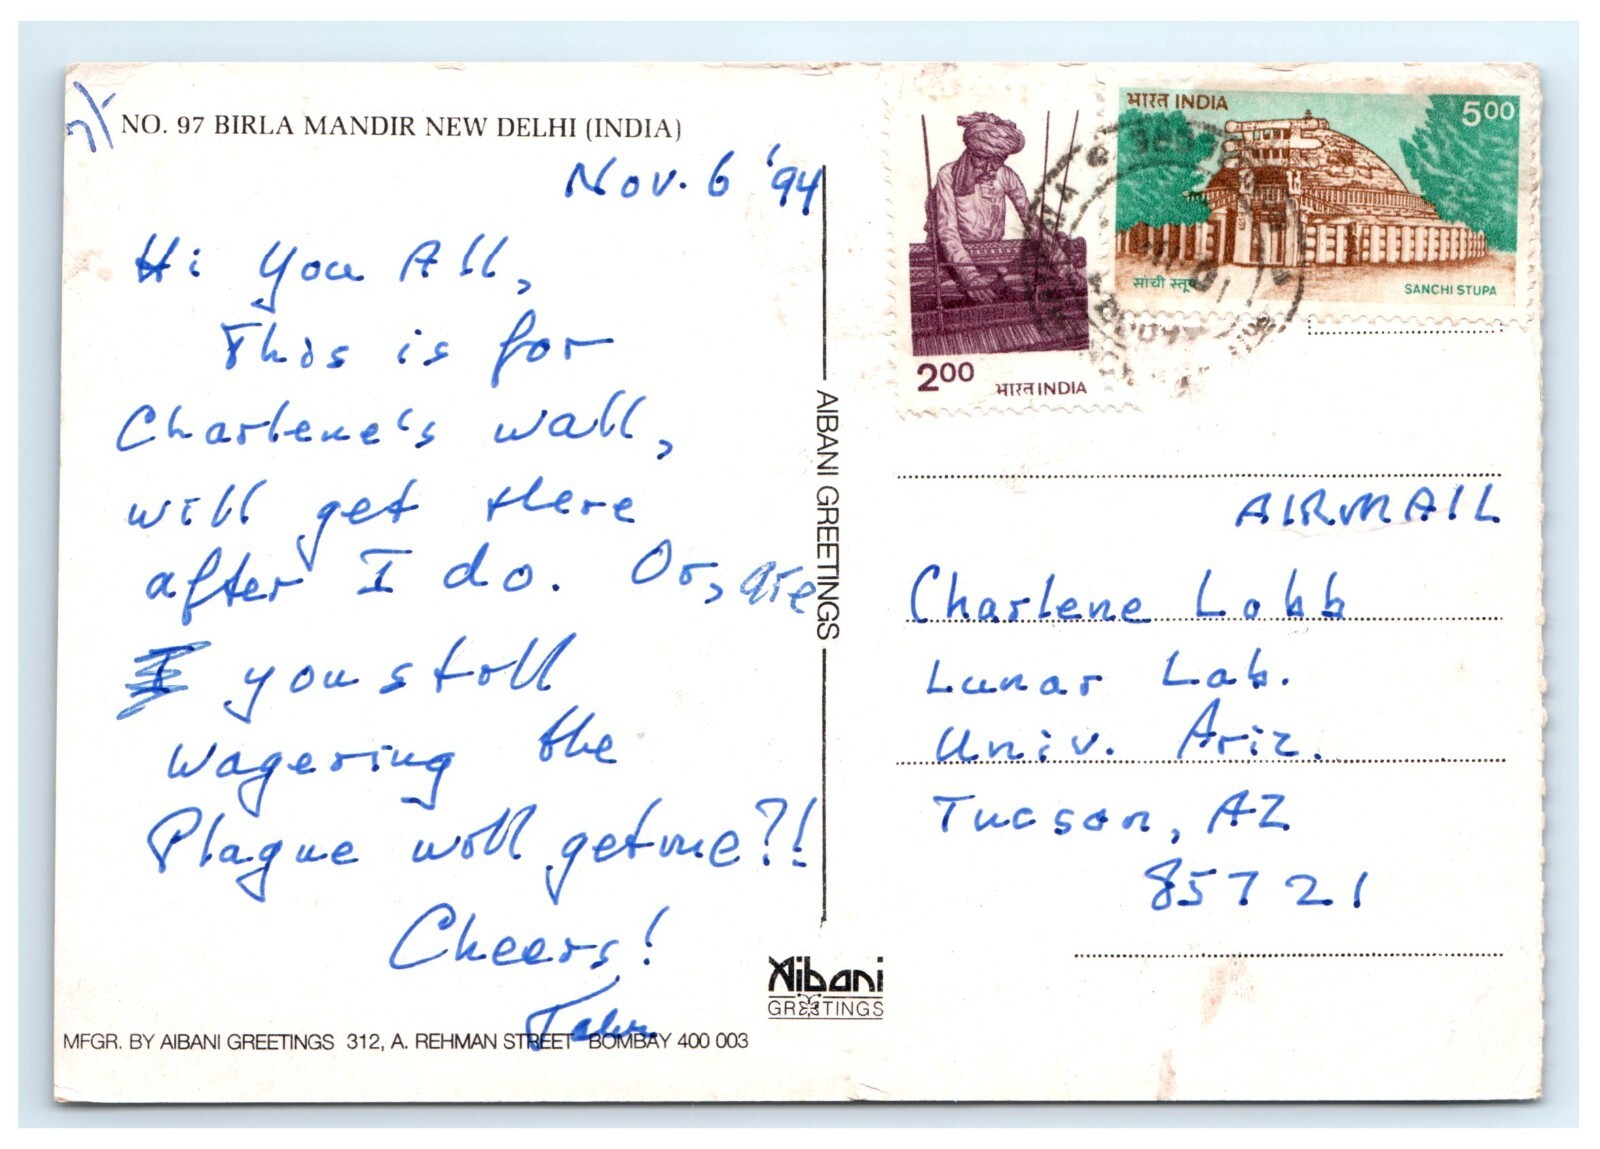 NO. 97 BIRLA MANDIR NEW DELHI (INDIA)
Nov. 6 '94
Hi You All,
This is for
Charlene's wall,
will get there
after I do. Or, are
I you still
wagering the
Plague will get me?!
Cheers!
MFGR. BY AIBANI GREETINGS 312, A. REHMAN STREET BOMBAY 400 003
AIBANI GREETINGS
Aibani
GREETINGS
200
भारत INDIA
भारत INDIA
500
सांची स्तूप
SANCHI STUPA
AIRMAIL
Charlene Lobb
Lunar Lab.
Univ. Ariz.
Tucson, AZ
85721